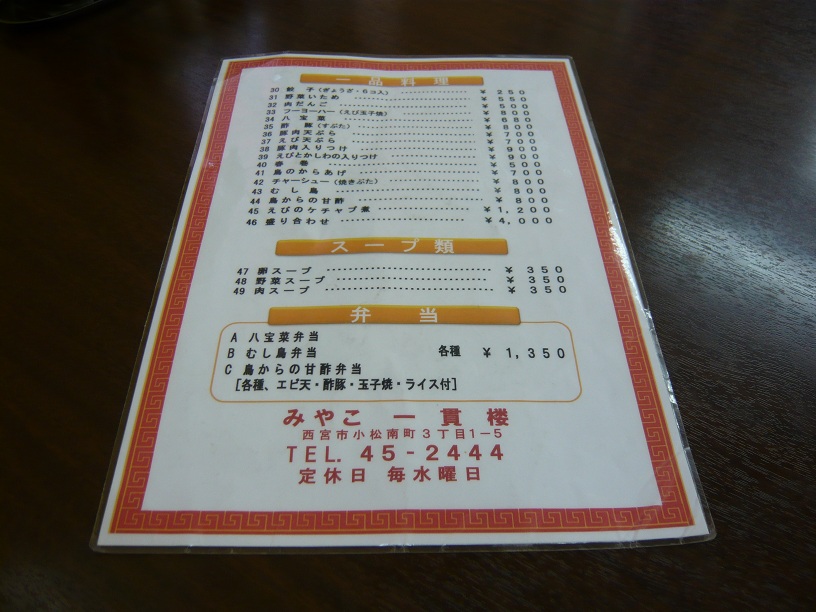 一品料理
30 餃子(ぎょうざ・6コ入) ¥250
31 野菜いため ¥550
32 肉だんご ¥500
33 フーヨーハー(えび玉子焼) ¥800
34 八宝菜 ¥680
35 酢豚(すぶた) ¥800
36 豚肉天ぷら ¥700
37 えび天ぷら ¥700
38 豚肉入りつけ ¥900
39 えびとかしわの入りつけ ¥900
40 春巻 ¥500
41 鳥のからあげ ¥700
42 チャーシュー(焼きぶた) ¥800
43 むし鳥 ¥800
44 鳥からの甘酢 ¥800
45 えびのケチャプ煮 ¥1,200
46 盛り合わせ ¥4,000
スープ類
47 卵スープ ¥350
48 野菜スープ ¥350
49 肉スープ ¥350
弁当
A 八宝菜弁当
B むし鳥弁当 各種 ¥1,350
C 鳥からの甘酢弁当
[各種、エビ天・酢豚・玉子焼・ライス付]
みやこ 一貫楼
西宮市小松南町3丁目1-5
TEL. 45-2444
定休日 毎水曜日